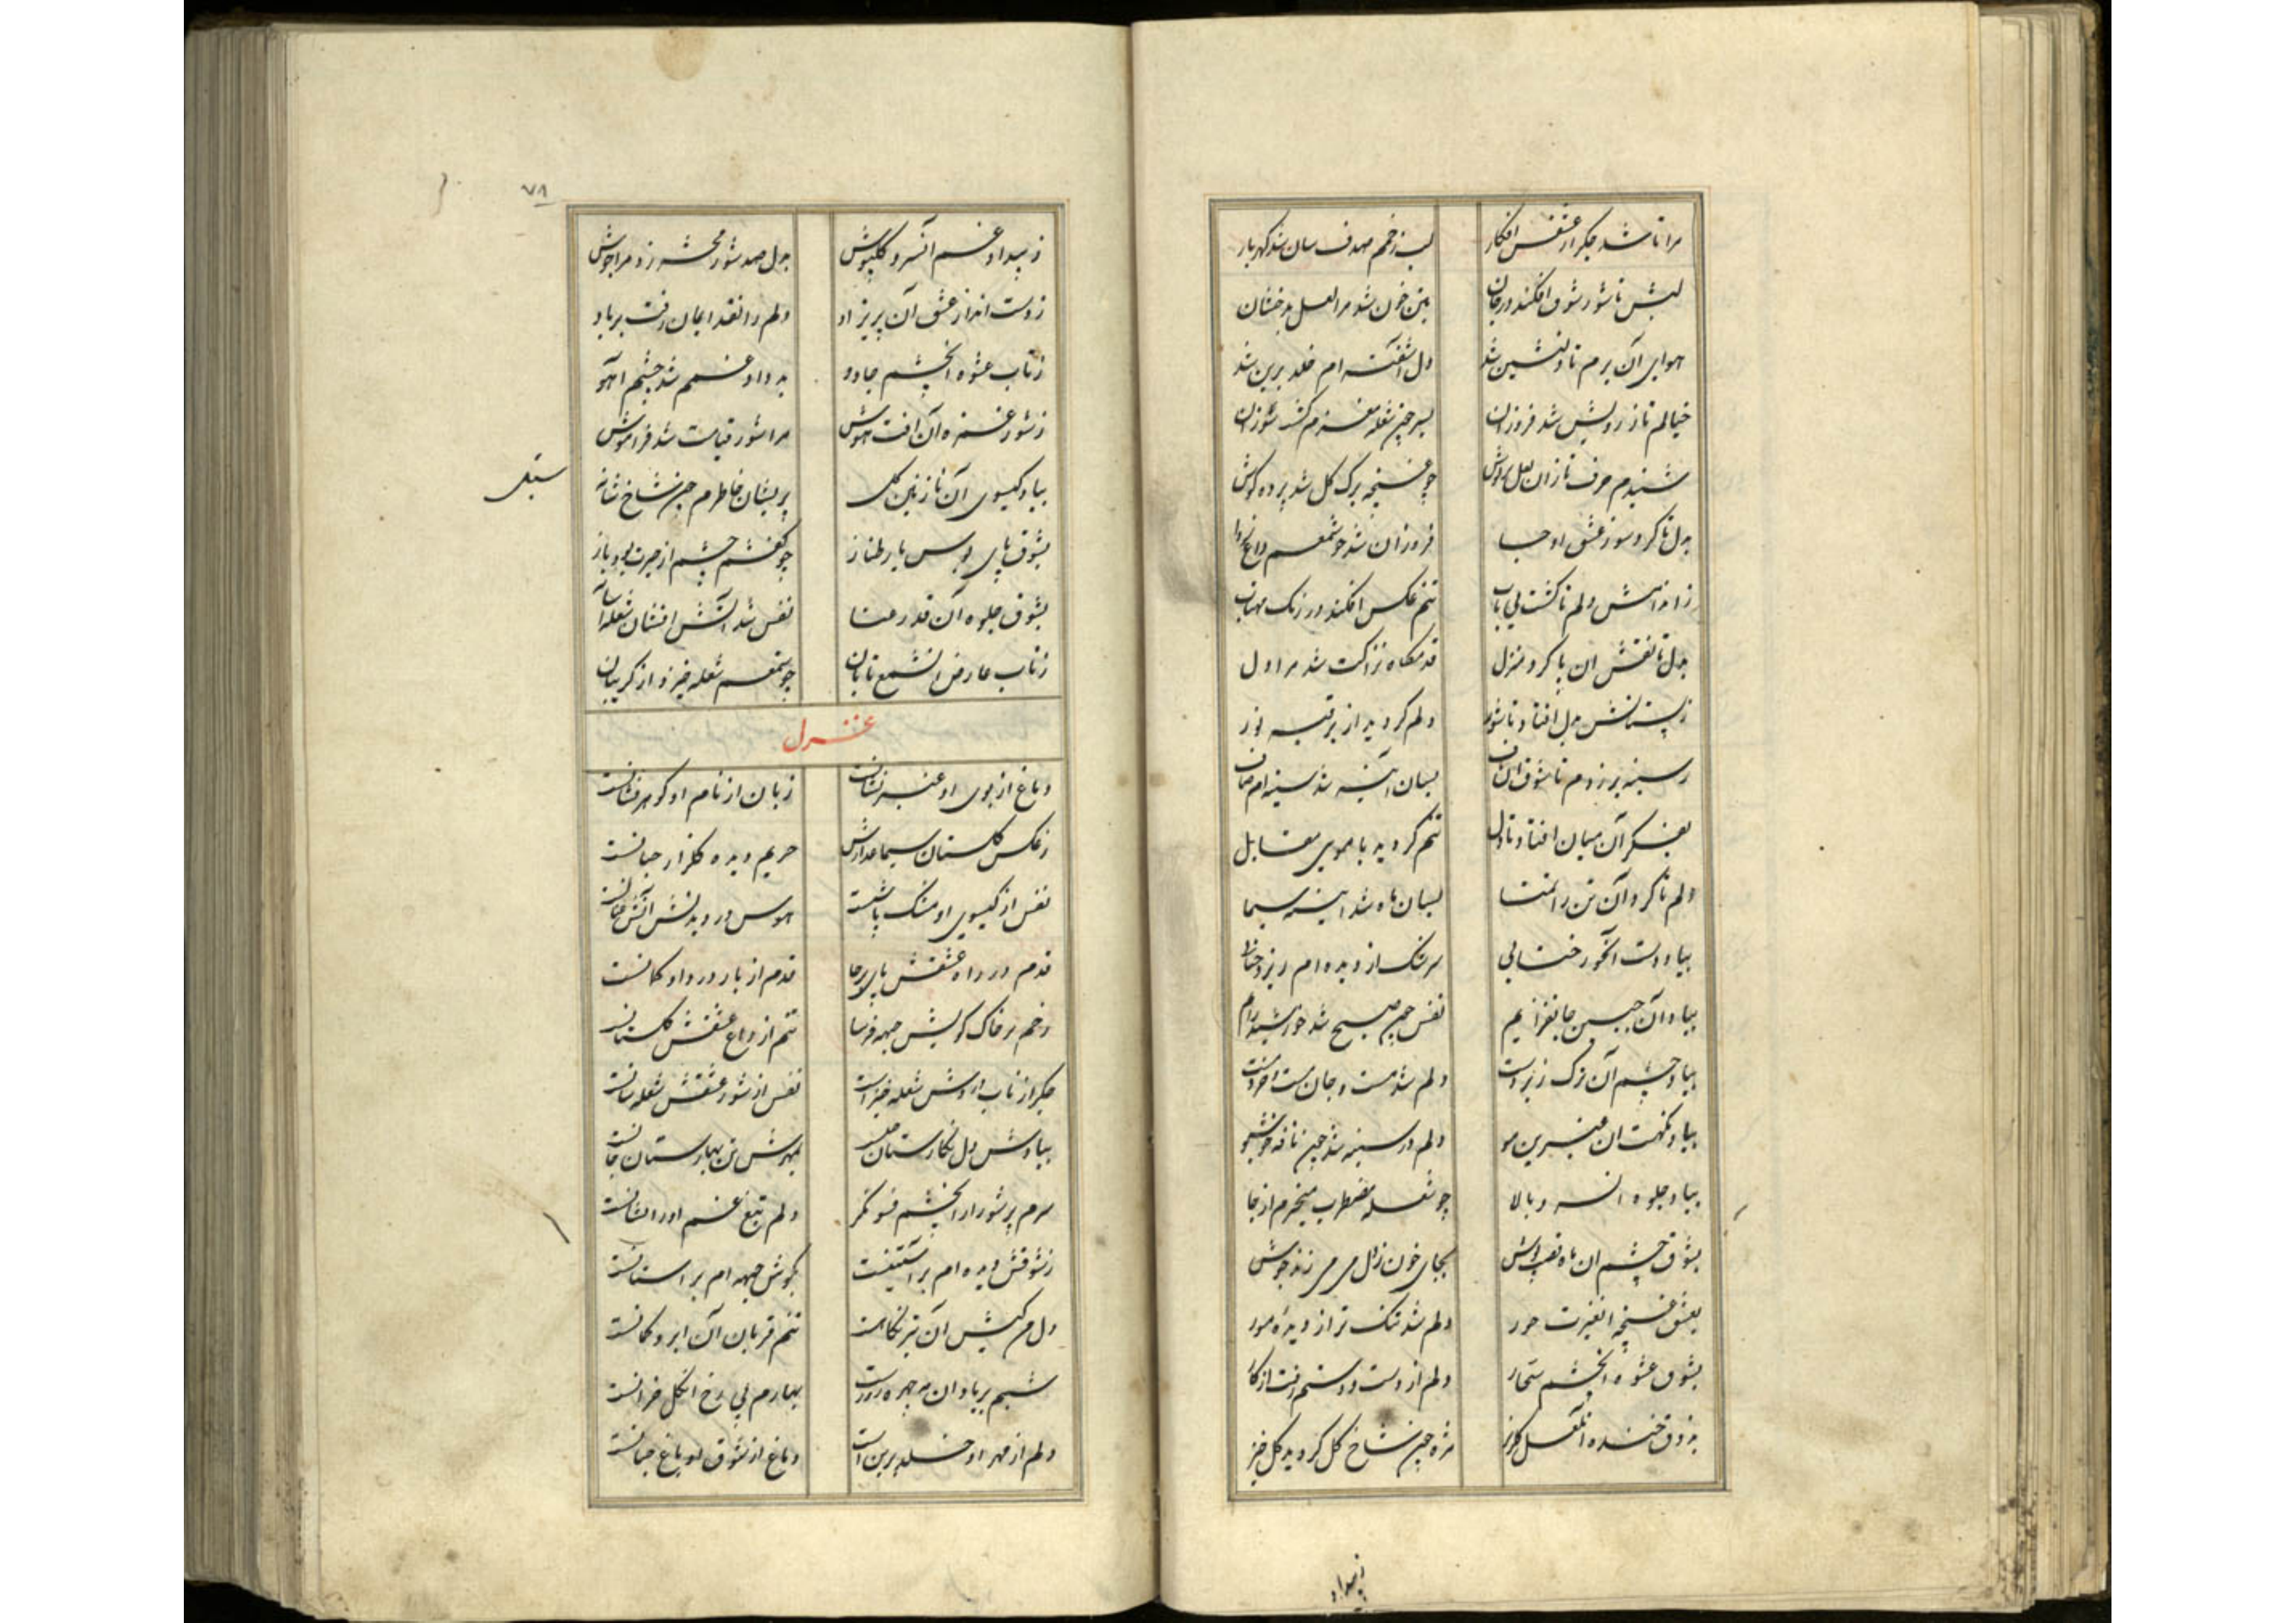 مرا تا شد جکر از عشقش افکار لب زخمم صدف سان شد کهربار
لبش تا شور شوق افکند در جان بتن خون شد مرا لعل بدخشان
هوای آن برم تا دلنشین شد دل آشفته ام خلد برین شد
خیالم تا ز رویش شد فروزان بسر چون شعله مغزم کشت سوزان
شنیدم حرف تا زان لعل میnوش چو غنچه برک کل شد پرده کوش
بدل تا کرد سوز عشق او جا فروزان شد چو شمعم داغ
ز اندامش دلم تا کشت بی تاب تنم عکس افکند در رنک مهتاب
بدل تا نقش ان پا کرد منزل قدمکاه نزاکت شد مرا دل
ز پستانش بدل افتاد تا شور دلم کردید از بر قبه نور
ز سینه بر زدم تا شوق ان ناف بسان آینه شد سینه ام صاف
بفکر آن میان افتاد تا دل تنم کردید با مویی مقابل
دلم تا کرد آن تن را تمنا بسان ماه شد آیینه سیما
بیاد دست آنحور حنایی سرشک از دیده ام ریزد حنایی
بیاد آن جبین جانفزایم نفس چون صبح شد خورشید زایم
بیاد چشم آن ترک زبردست دلم شد مست و جان مست و خرد مست
بیاد نکهت ان عنبرین مو دلم در سینه شد چون نافه خوشبو
بیاد جلوه آنسرو بالا چو شعله مضطرب میخیزم از جا
بشوق چشم ان ماه قصب پوش بجای خون ز دل می می زند جوش
بعشق غنچه آنغیرت حور دلم شد تنک تر از دیده مور
بشوق عشوه آنچشم سحار دلم از دست و دستم رفت از کار
بذوق خنده آنلعل کلریز مژه چون شاخ کل کردید کل خیز
ز بیداد
۷۸
ز بیداد غم آنسرو کلپوش بدل صد شور محشر زد مرا جوش
ز دست انداز عشق آن پریزاد دلم را نقد ایمان رفت بر باد
ز تاب عشوه آنچشم جادو بداد غم شد چشم آهو
ز شور غمزه آن آفت هوش مرا شور قیامت شد فراموش
بیاد کیسوی آن نازنین کل پریشان خاطرم چون شاخ
بشوق پای بوس یار طناز چو کفشم چشم از حیرت بود باز
بشوق جلوه آن قد رعنا نفس شد آتش افشان شعله آسا
ز تاب عارض آنشمع تابان چو شمعم شعله خیزد از کریبان
غزل
دماغ از بوی او عنبر فشانست زبان از نام او کوهر فشانست
ز عکس کلستان سیما عذارش حریم دیده کلزار جنانست
نفس از کیسوی او مشک پاشست هوس در دیدنش آتش عنانست
قدم در راه عشقش پای برجا قدم از بار درد او کمانست
رخم بر خاک کویش جبهه فرسا تنم از داغ عشقش کلستانست
جکر از تاب او شعله خیز است نفس از شور عشقش شعله سانست
بیادش دل نکارستان بمهرش تن بهارستان جانست
سرم پر شور از آنچشم فسونکر دلم تیغ غم او را نشانست
ز شوقش دیده ام بر آستینست بکویش جبهه ام بر آستانست
دل من کیش آن تیر نکاهست تنم قربان آن ابرو کمانست
شبم بر یاد ان مه چهره روزست بهارم بی رخ آنکل خزانست
دلم از مهر او خلد برین است دماغ از شوق او باغ جنانست